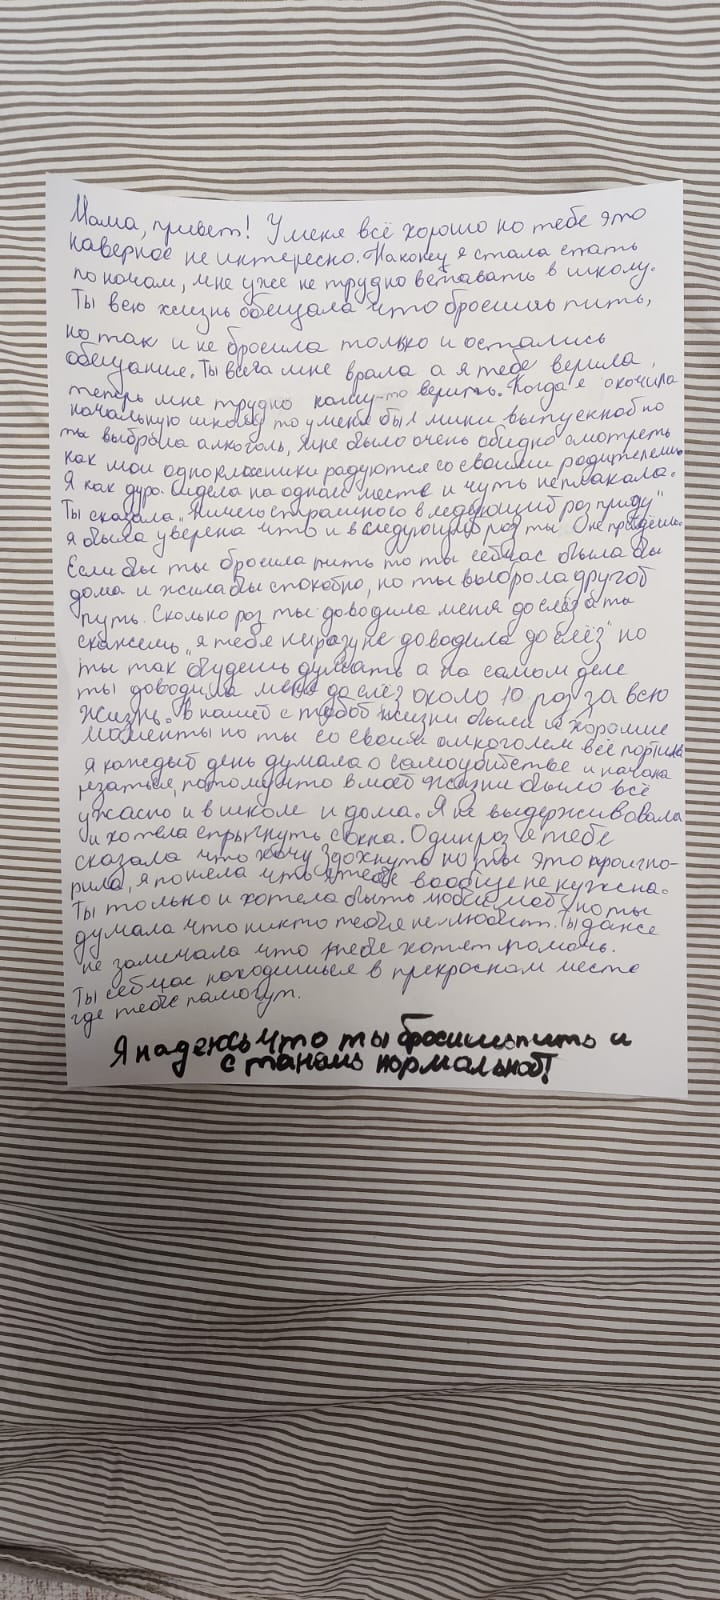 Мама, привет! У меня всё хорошо но тебе это
наверное не интересно. Наконец я стала спать
по ночам, мне уже не трудно вставать в школу.
Ты всю жизнь обещала что бросишь пить,
но так и не бросила только и остались
обещание. Ты всега мне врала а я тебе верила,
теперь мне трудно кому-то верить. Когда я окочила
начальную школу то у меня был мини выпускной но
ты выброла алкоголь, мне было очень обидно смотреть
как мои однокласники радуются со своими родителями.
Я как дура сидела на одном месте и чуть не плакала.
Ты сказала „Ничего страшного в ледующий роз приду"
я была уверена что и в следующий роз ты не прейдёшь.
Если бы ты бросила пить то ты сейчас была бы
дома и жила бы спокойно, но ты выброла другой
путь. Сколько роз ты доводила меня до слёз а ты
скажешь „я тебя ни разу не доводила до слёз" но
ты так будешь думать а на самом деле
ты доводила меня до слёз около 10 роз за всю
жизнь. В нашей с тобой жизни были и хорошие
моменты но ты со своим алкоголем всё портила
я каждый день думала о самоубийстве и начала
резаться, потому что в моей жизни было всё
ужасно и в школе и дома. Я не выдерживовала
и хотела спрыгнуть с окна. Один роз я тебе
сказала что хочу здохнуть но ты это проигно-
рила, я понела что я тебе вообще не нужена.
Ты только и хотела быть любимой но ты
думала что никто тебя не любит. Ты даже
не замичала что тебе хотят помочь.
Ты сейчас находишься в прекрасном месте
где тебе помогут.
Я надеюсь что ты бросишь пить и
станешь нормальной!